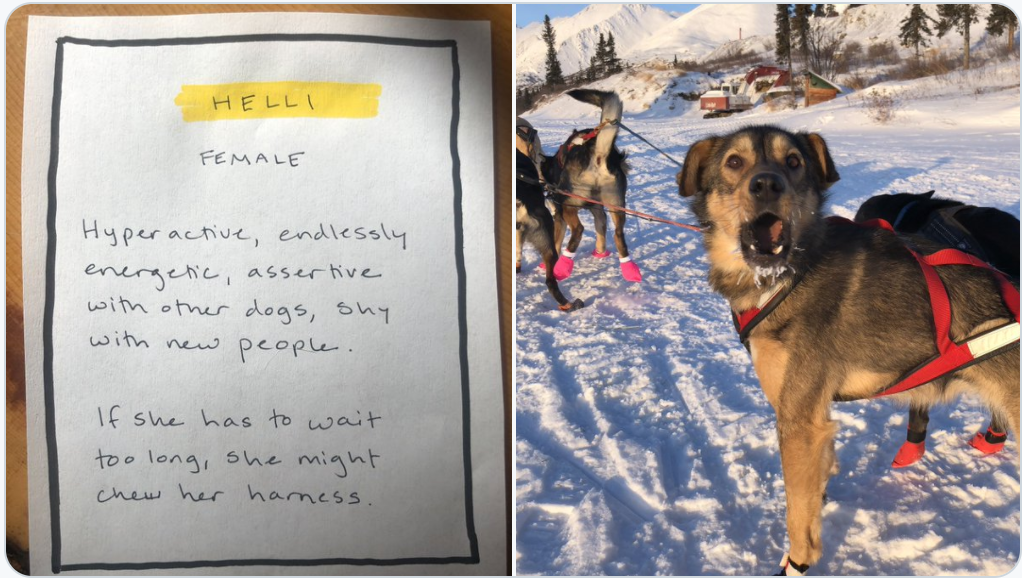 HELLI
FEMALE
Hyperactive, endlessly
energetic, assertive
with other dogs, shy
with new people.
If she has to wait
too long, she might
chew her harness.